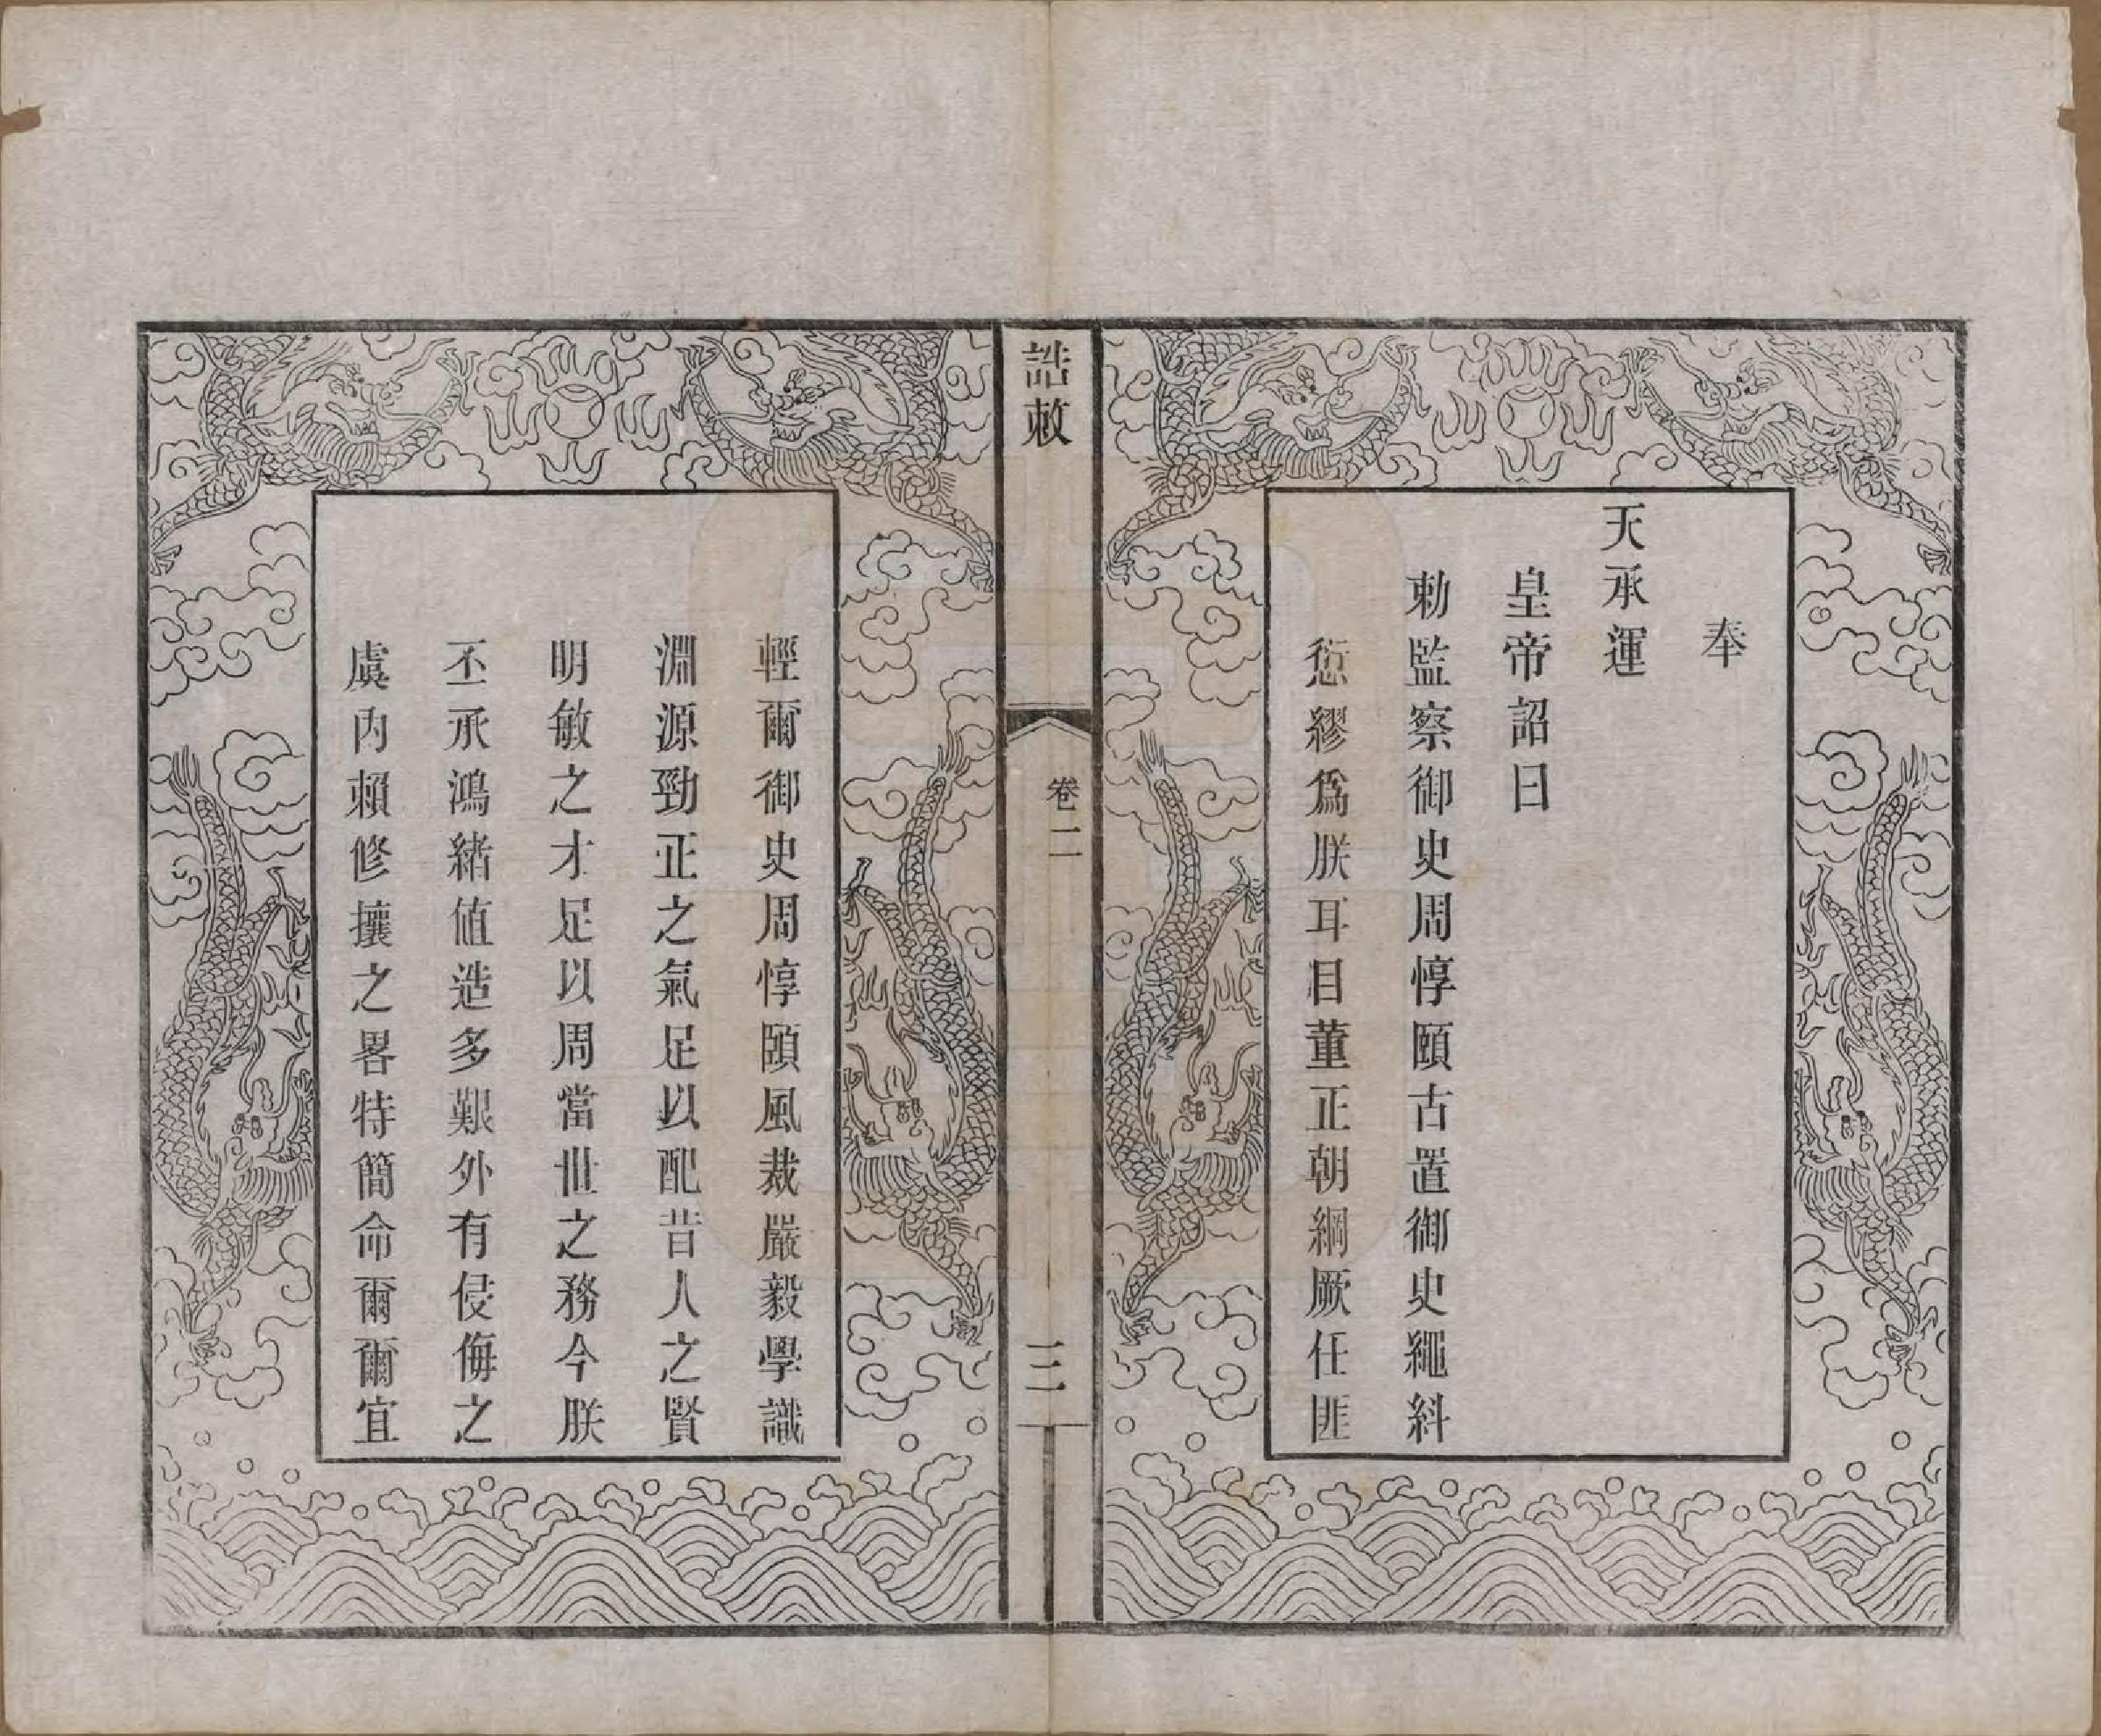 奉
天承運
皇帝詔曰
勅監察御史周惇頤古置御史繩糾
愆繆爲朕耳目董正朝綱厥任匪
誥敕
卷二
三
輕爾御史周惇頤風裁嚴毅學識
淵源勁正之氣足以配昔人之賢
明敏之才足以周當世之務今朕
丕承鴻緒値造多艱外有侵侮之
虞內賴修攘之畧特簡命爾爾宜